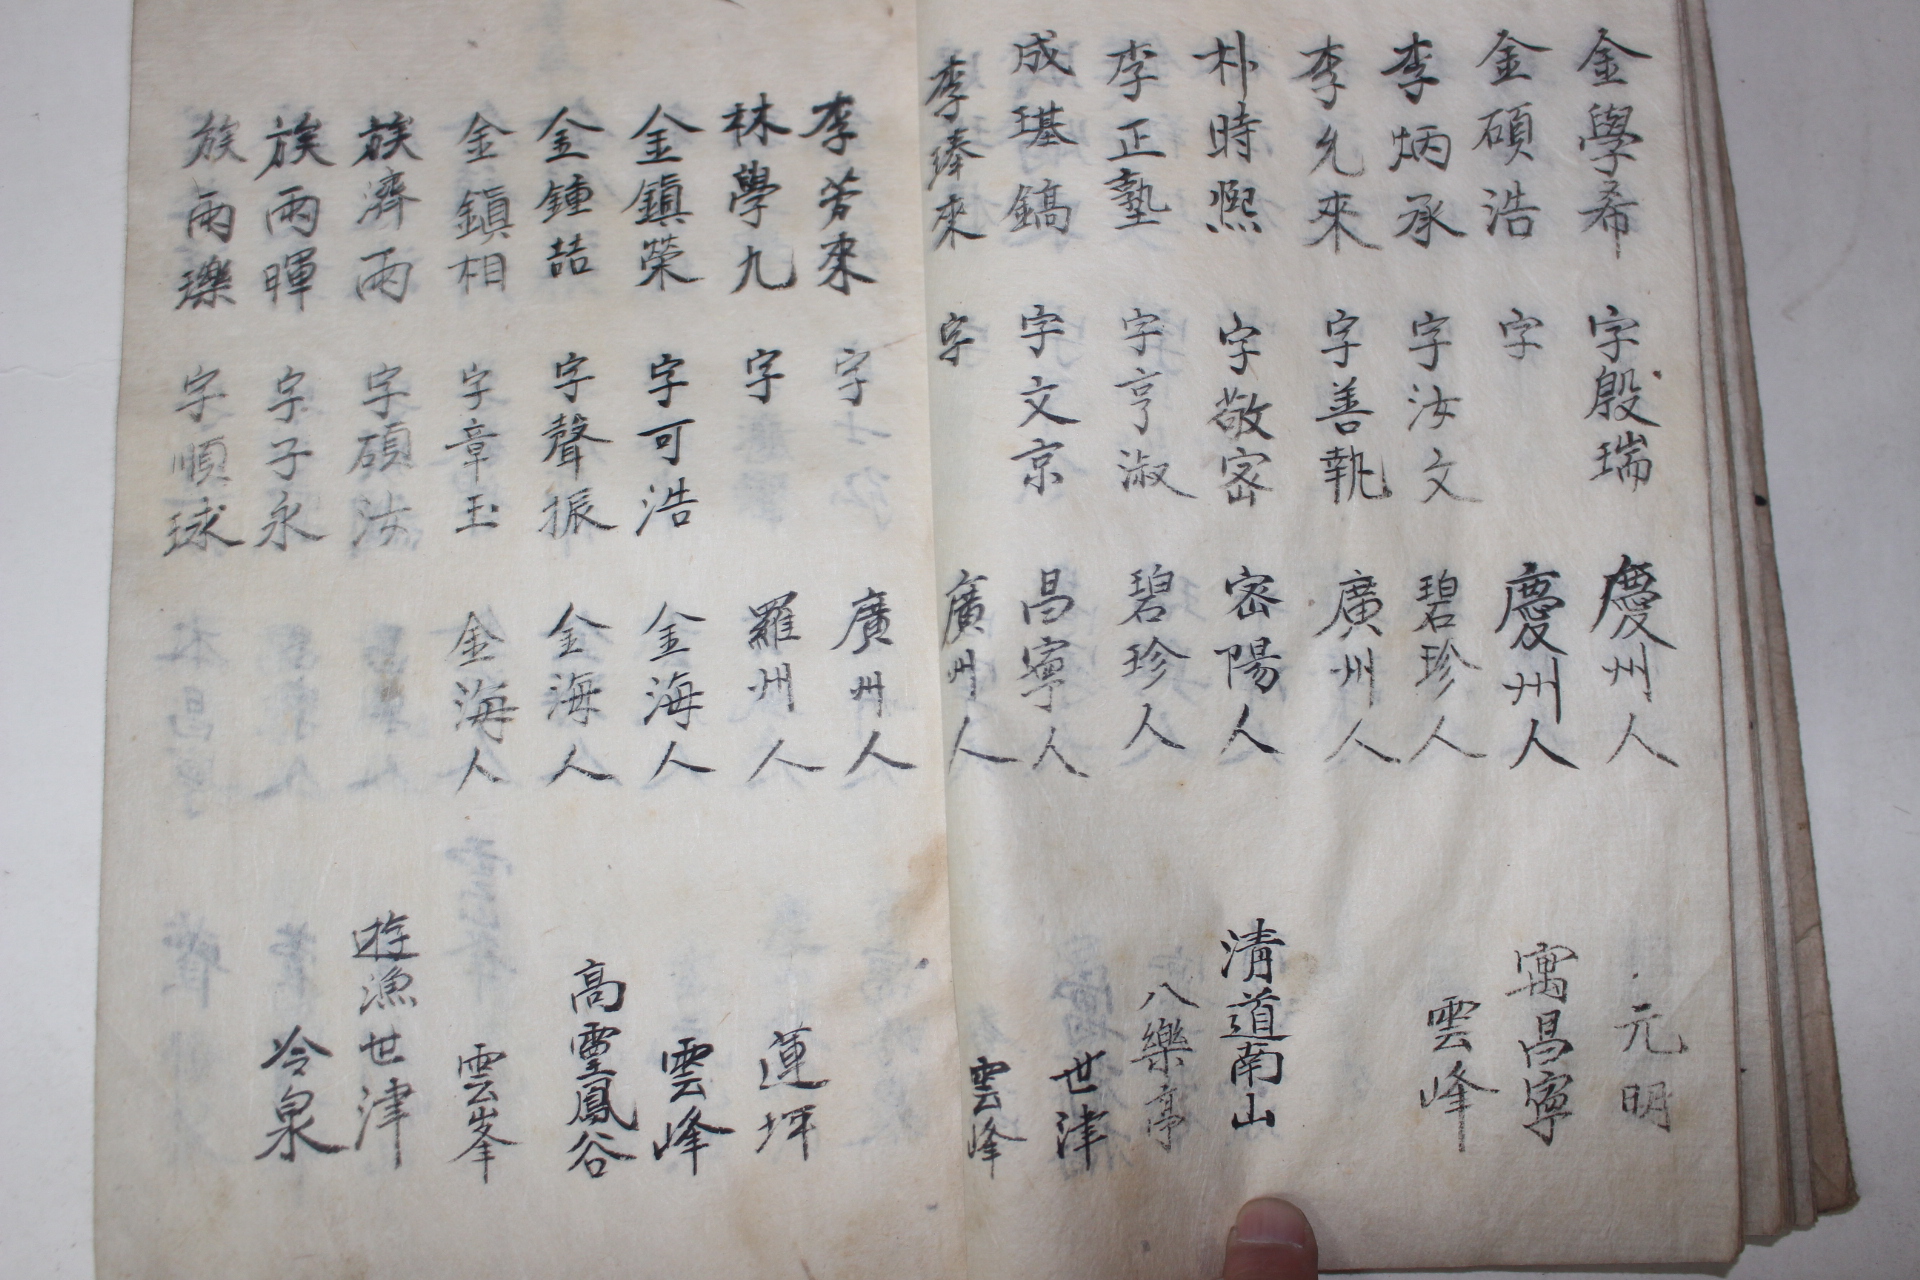 金學希 字殷瑞 慶州人 元明
金碩浩 字 慶州人 寓昌寧
李炳承 字汝文 碧珍人 雲峰
李允來 字善執 廣州人
朴時熙 字敬密 密陽人 清道南山
李正塾 字亨淑 碧珍人 八樂亭
成璂鎬 字文京 昌寧人 世津
李捧來 字 廣州人 雲峰
李芳來 字士弘 廣州人
林學九 字 羅州人 蓮坪
金鎭榮 字可浩 金海人 雲峰
金鍾喆 字聲振 金海人 高靈鳳谷
金鎭相 字章玉 金海人 雲峯
族濟雨 字碩汝 遊漁世津
族雨暉 字子永 冷泉
族雨瓅 字順球